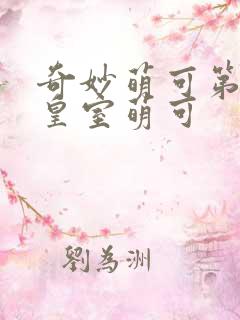 奇妙萌可第
皇室萌可
劉為洲